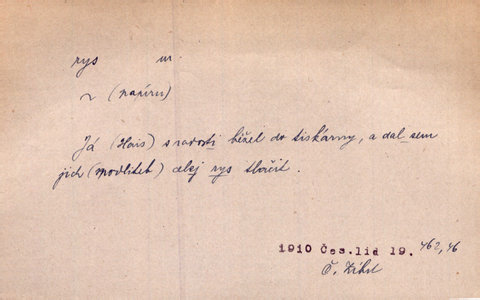 rys m.
~ (papíru)
Já (Hais) s radostí běžel do tiskárny, a dal sem
jich (modliteb) celej rys tlačit.
1910 Čes.lid 19. 462,46
Č. Zíbrt